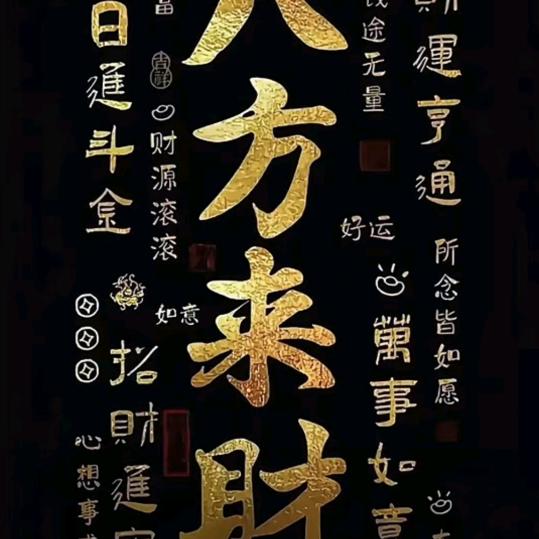 財運亨通
所念皆如愿
钱途无量
好运
萬事如意
八方来財
富
吉祥
财源滚滚
如意
日進斗金
招財進寶
心想事成